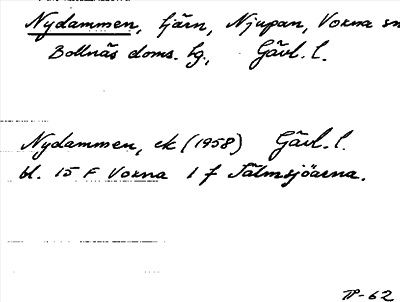 Nydammen, tjärn, Njupan, Voxna sn
Bollnäs doms. tg., Gävl. l.
Nydammen, ek (1958) Gävl. l.
bl. 15 F Voxna 1 f Tälmsjöarna.
TP-62